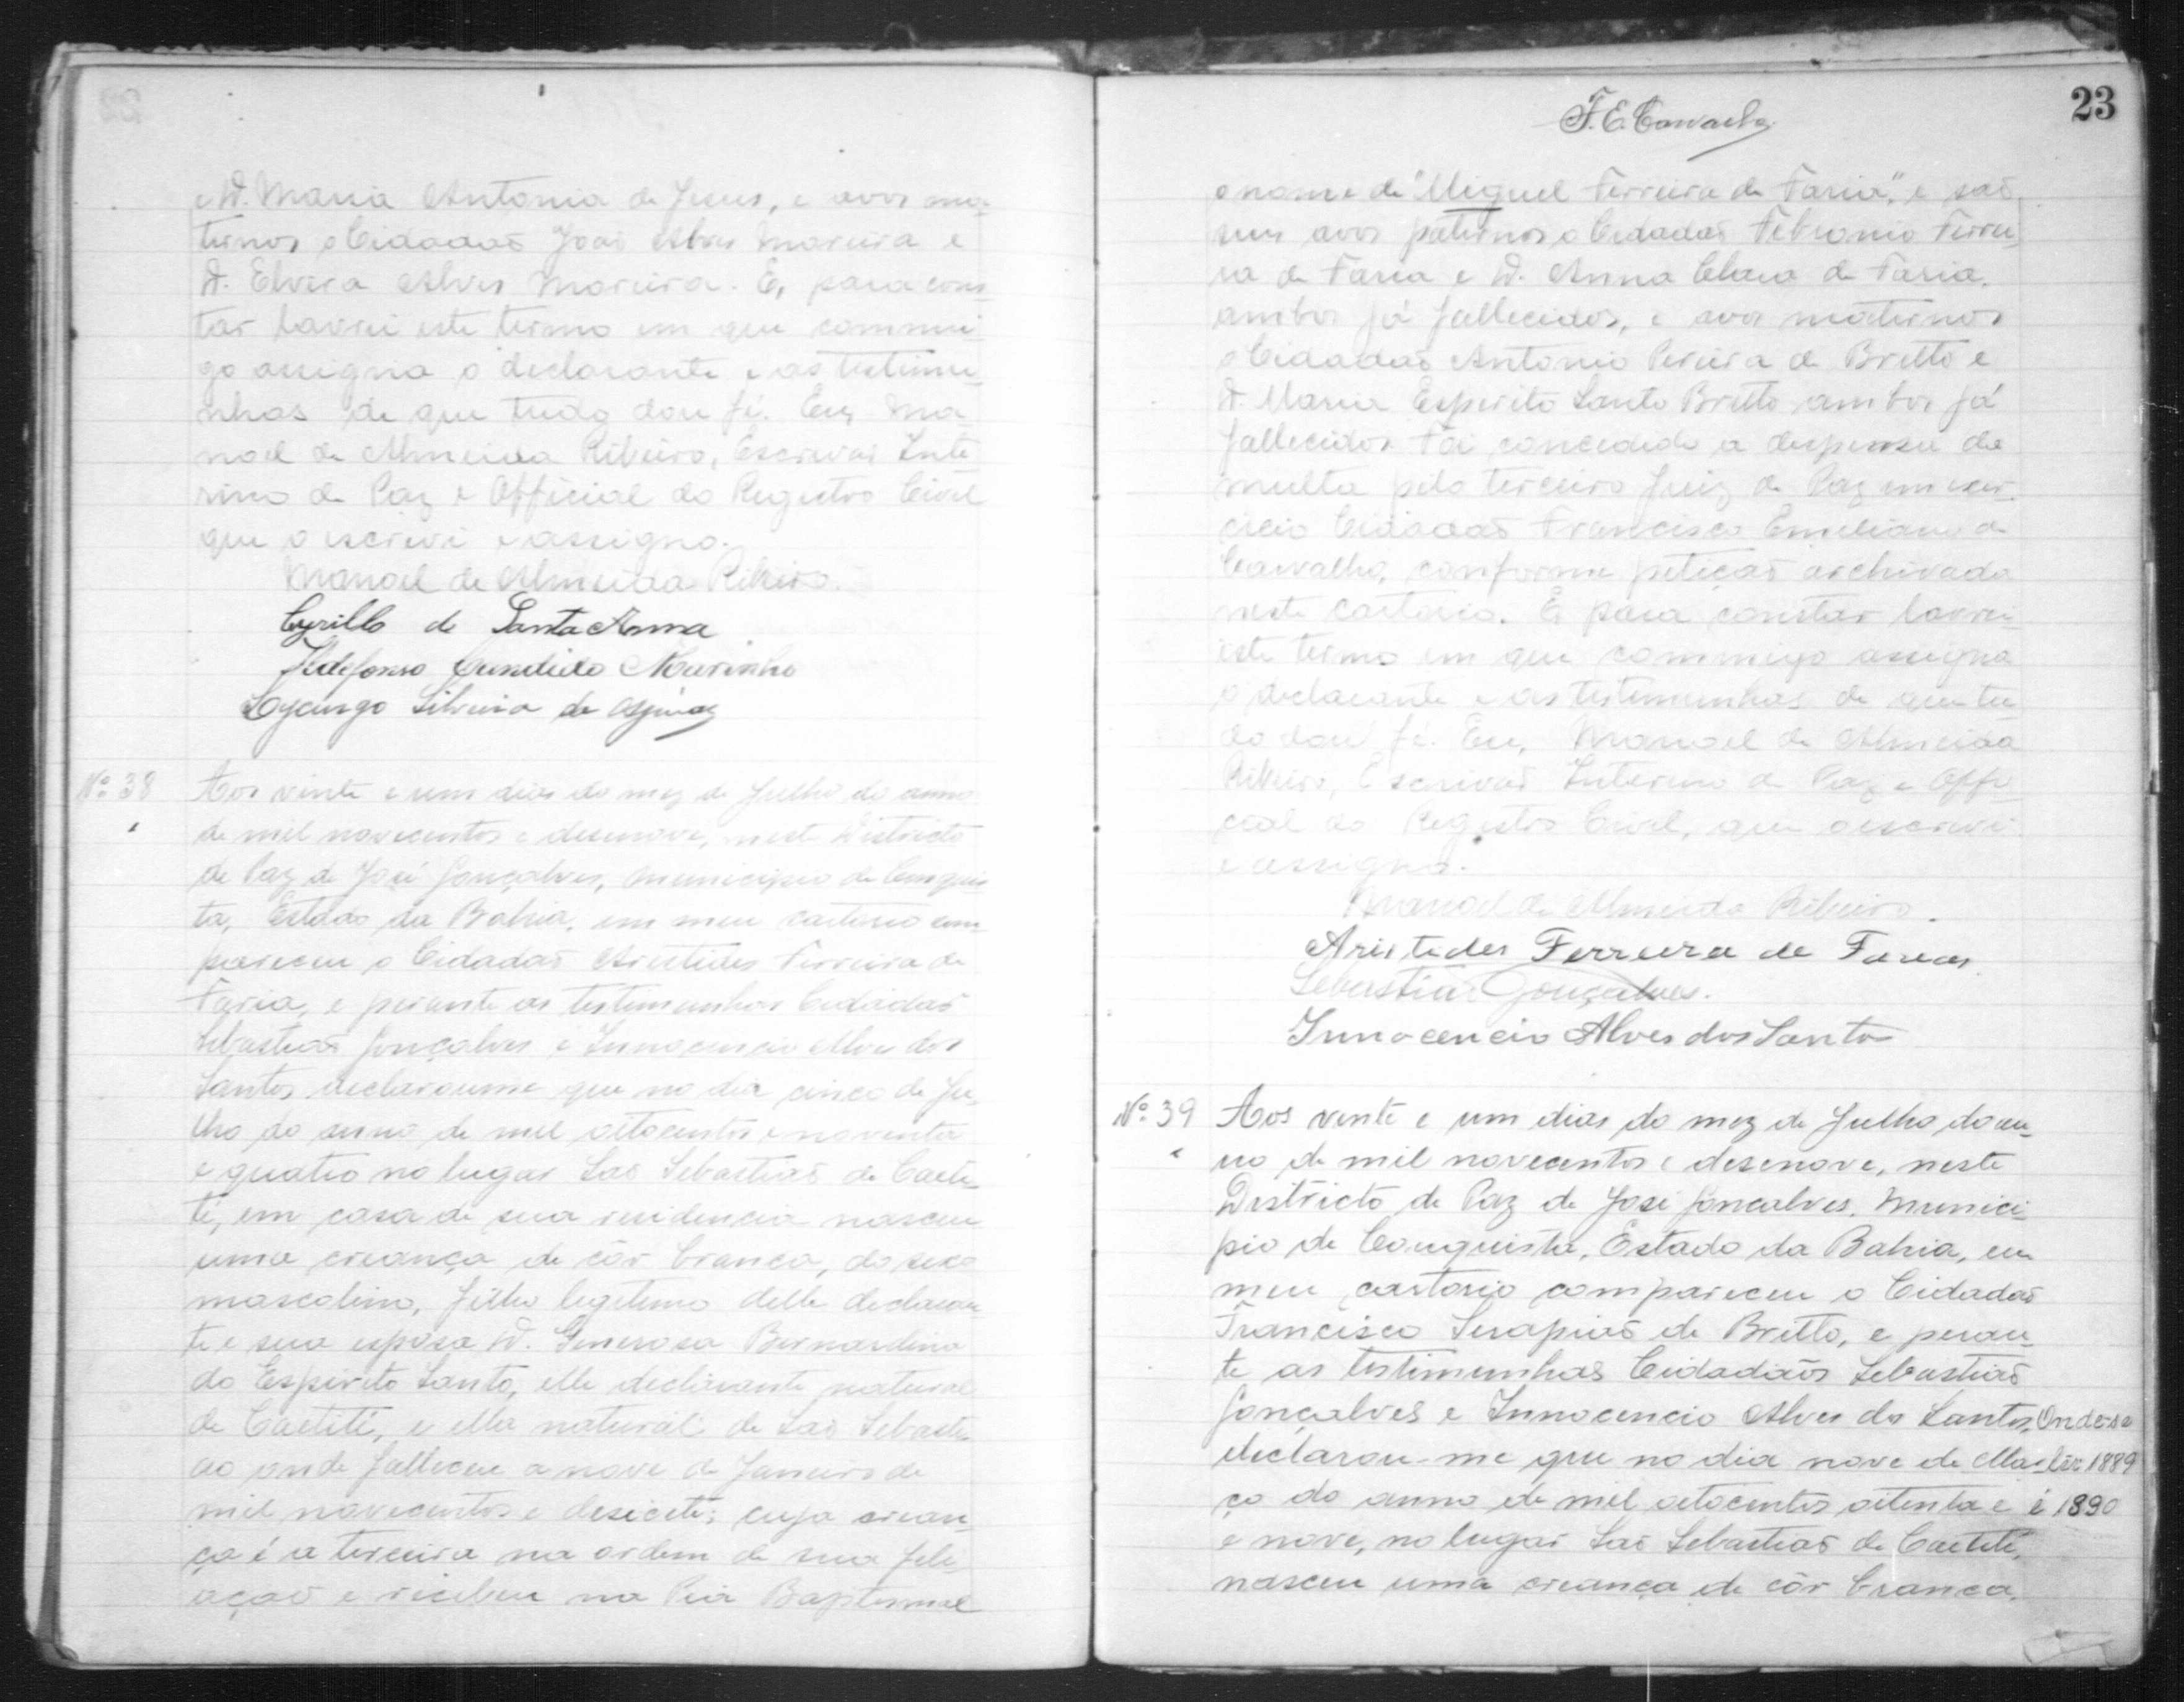 e D. Maria Antonia de Jesus, e avos ma-
ternos o Cidadaõ Joaõ Alves Moreira e
D. Elvira Alves Moreira. E, para cons-
tar lavrei este termo em que commi-
go assigna o declarante e as testimu-
nhas de que tudo dou fé. Eu, Ma-
noel de Almeida Ribeiro, Escrivaõ Inte-
rino de Paz e Official do Registro Civil
que o escrevi e assigno.
Manoel de Almeida Ribeiro.
Cyrillo de Santa Anna
Ildefonso Candido Marinho
Lycurgo Silveira de
Nº 38 Aos vinte e um dias do mez de Julho do anno
de mil novecentos e desenove, neste Districto
de Paz de José Gonçalves, Municipio de Conquis-
ta, Estado da Bahia, em meu cartorio com-
pareceu o Cidadaõ Aristides Ferreira de
Faria, e perante as testimunhas Cidadaõs
Sebastiaõ Gonçalves e Innocencio Alves dos
Santos declaroume que no dia cinco de Ju-
lho do anno de mil oitocentos e noventa
e quatro no lugar Saõ Sebastiaõ de Caete-
té, em casa de sua residencia nasceu
uma creança de côr branca, do sexo
mascolino, filho legitimo delle declaran-
te e sua esposa D. Generosa Bernardina
do Espirito Santo, elle declarante natural
de Caetité, e ella natural de Saõ Sebasti-
ao onde falleceu a nove de Janeiro de
mil novecentos e desecete; cuja crean-
ça é a terceira na ordem de sua fili-
açaõ e recebeu na Pia Baptismal
F. E. Carvalho
23
o nome de "Miguel Ferreira de Faria", e saõ
seus avos paternos o Cidadaõ Febronio Ferrei-
ra de Faria e D. Anna Clara de Faria,
ambos já fallecidos, e avos maternos
o Cidadaõ Antonio Pereira de Britto e
D. Maria Espirito Santo Britto ambos já
fallecidos. Foi concedido a despensa da
multa pelo terceiro Juiz de Paz em exer-
cicio Cidadaõ Francisco Emeliano de
Carvalho, conforme petiçaõ archivada
neste cartorio. E para constar lavrei
este termo em que commigo assigna
o declarante e as testimunhas de que tu-
do dou fé. Eu, Manoel de Almeida
Ribeiro, Escrivaõ Interino de Paz e Offi-
cial do Registro Civil, que o escrevi
e assigno.
Manoel de Almeida Ribeiro.
Aristedes Ferreira de Farias
Sebastiaõ Gonçalves.
Innocencio Alves dos Santos
Nº 39 Aos vinte e um dias do mez de Julho do an-
no de mil novecentos e desenove, neste
Districto de Paz de José Goncalves, Munici-
pio de Conquista, Estado da Bahia, em
meu cartorio compareceu o Cidadaõ
Francisco Serapiaõ de Britto, e peran-
te as testimunhas Cidadãos Sebastiaõ
Gonçalves e Innocencio Alves dos Santos, Onde se
declarou-me que no dia nove de Mar- lêr 1889
ço do anno de mil oitocentos oitenta e é 1890
e nove, no lugar Saõ Sebastiaõ de Caetité,
nasceu uma creança de côr branca,